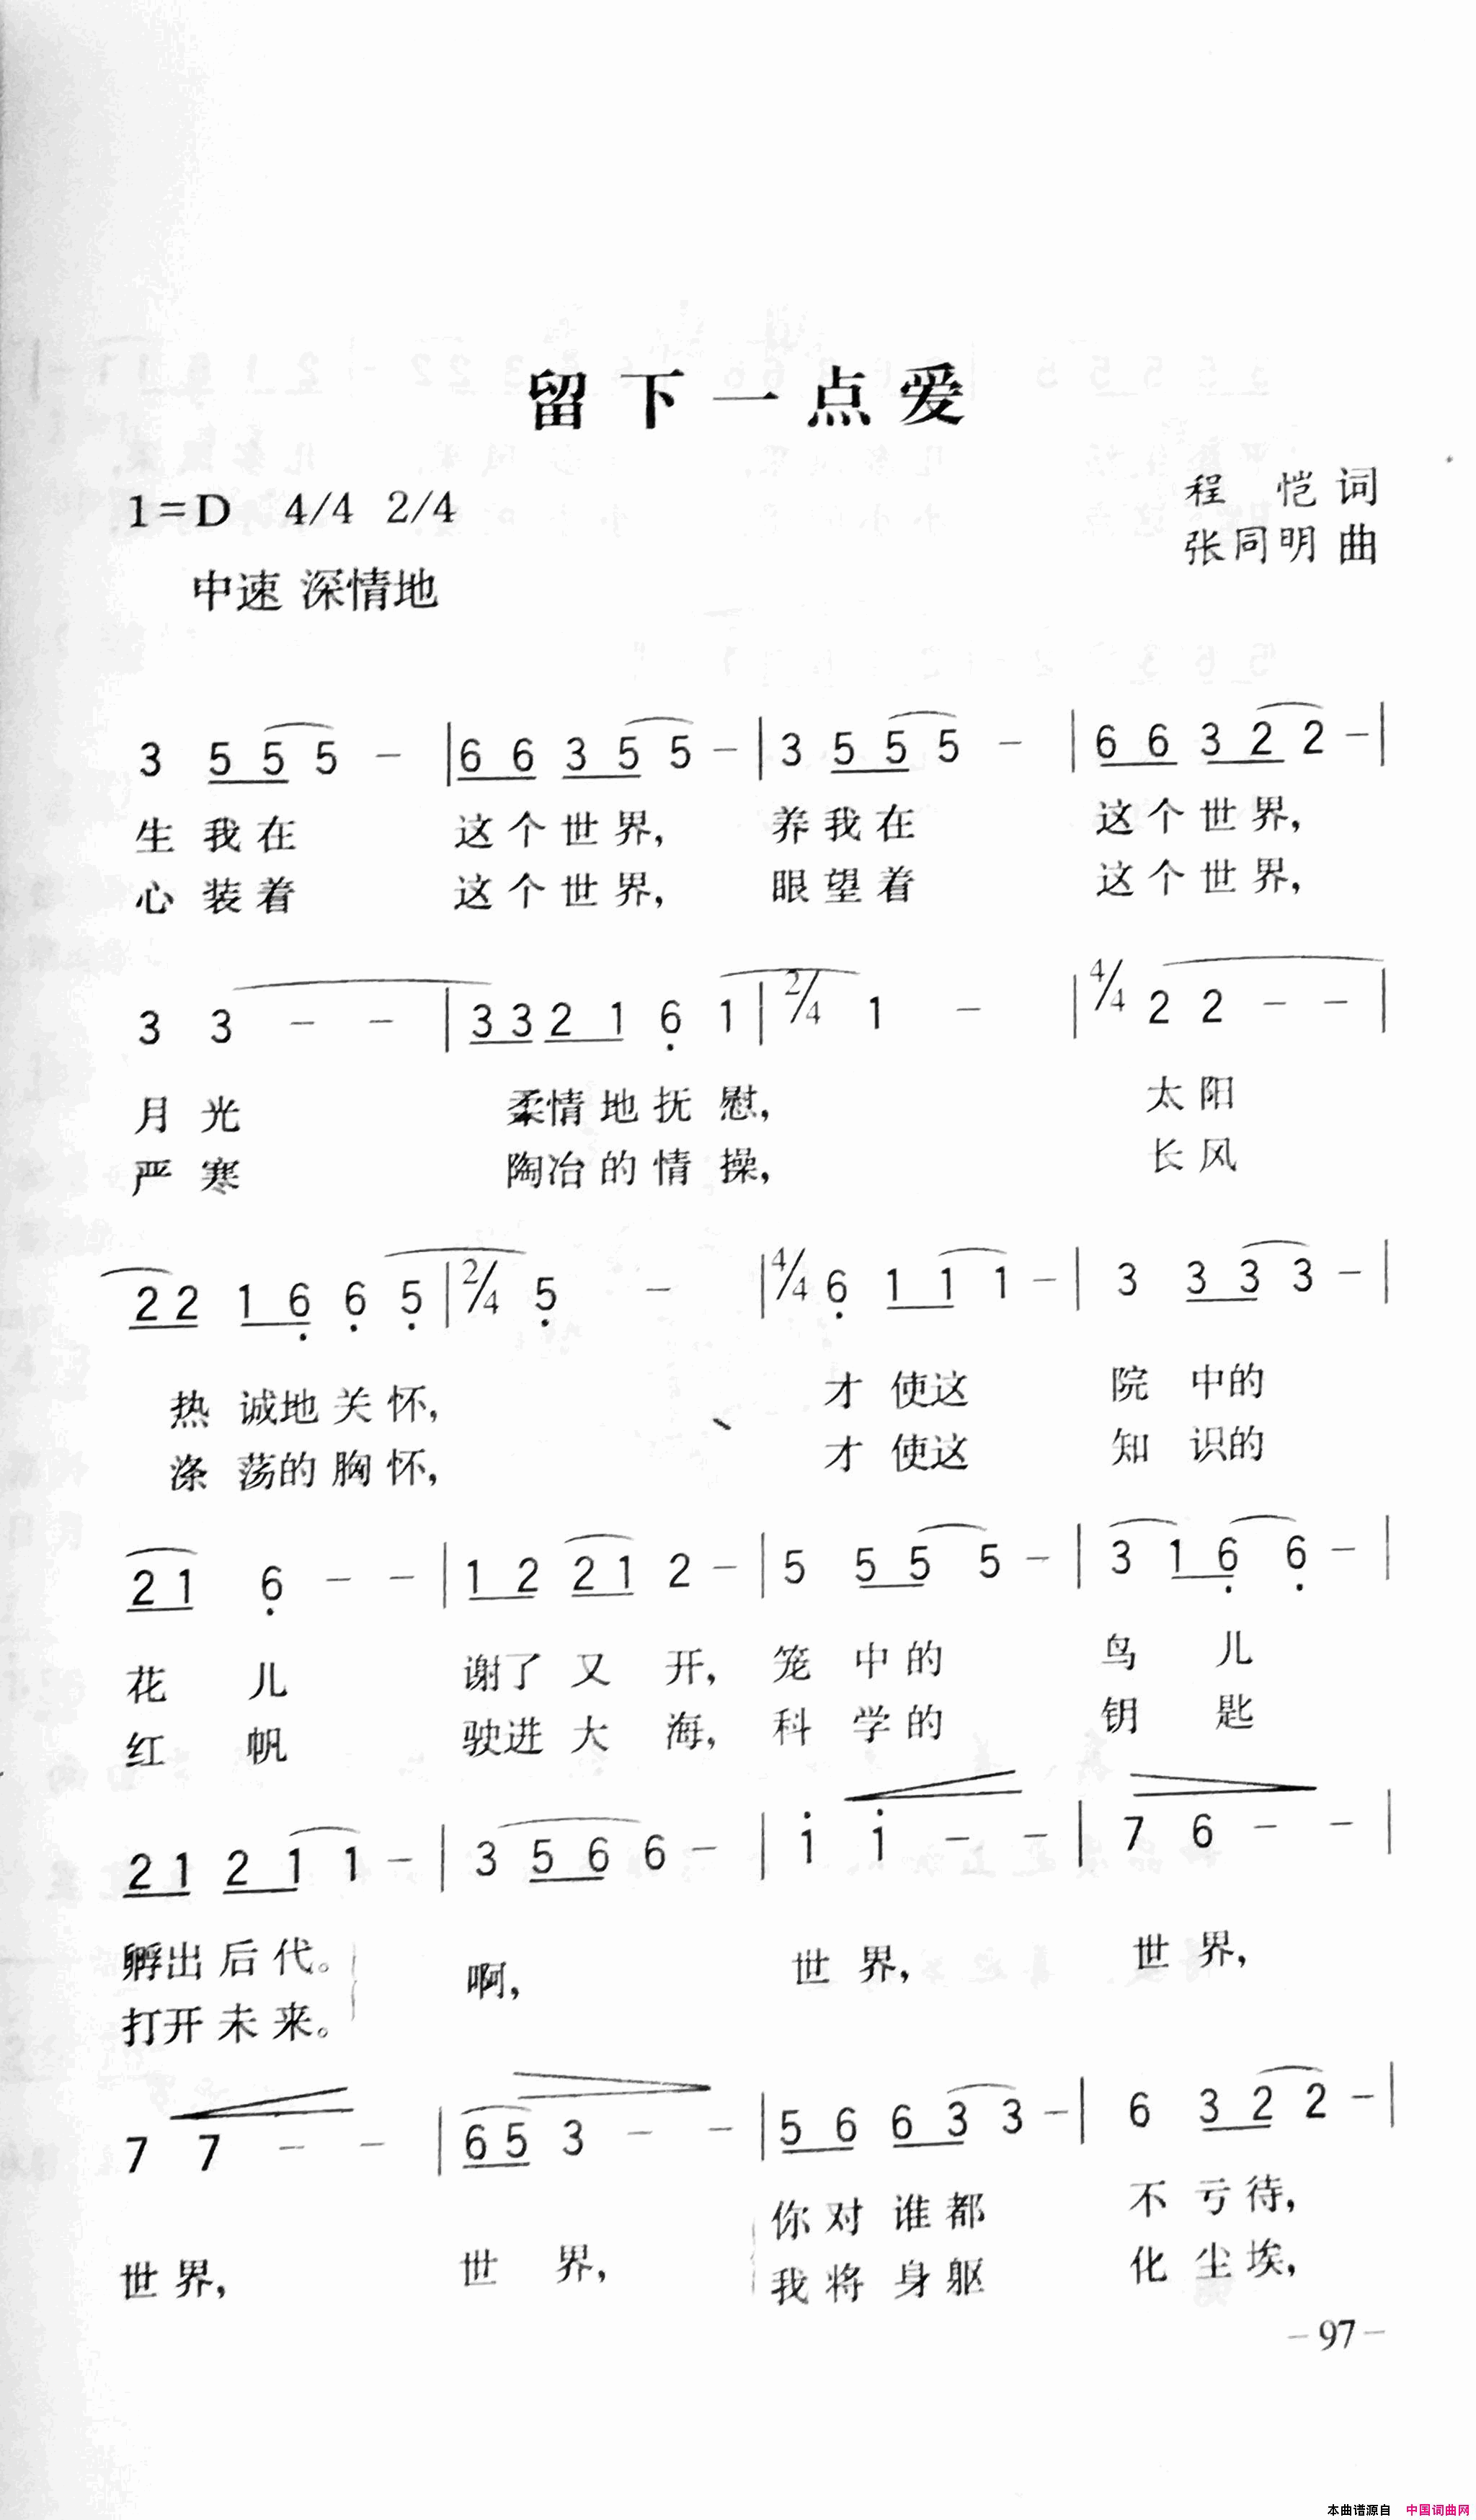 留下一点爱
1=D 4/4 2/4
程 恺 词
张同明 曲
中速 深情地
3 5 5 5 - | 6 6 3 5 5 - | 3 5 5 5 - | 6 6 3 2 2 - |
生 我 在 这 个 世 界, 养 我 在 这 个 世 界,
心 装 着 这 个 世 界, 眼 望 着 这 个 世 界,
3 3 - - | 3 3 2 1 6 1 | 2/4 1 - | 4/4 2 2 - - |
月 光 柔情 地 抚 慰, 太 阳
严 寒 陶冶 的 情 操, 长 风
2 2 1 6 6 5 | 2/4 5 - | 4/4 6 1 1 1 - | 3 3 3 3 - |
热 诚地 关 怀, 才 使这 院 中的
涤 荡的 胸 怀, 才 使这 知 识的
2 1 6 - - | 1 2 2 1 2 - | 5 5 5 5 - | 3 1 6 6 - |
花 儿 谢了 又 开, 笼 中 的 鸟 儿
红 帆 驶进 大 海, 科 学 的 钥 匙
2 1 2 1 1 - | 3 5 6 6 - | i i - - | 7 6 - - |
孵出 后 代。 啊, 世 界, 世 界,
打开 未 来。
7 7 - - | 6 5 3 - - | 5 6 6 3 3 - | 6 3 2 2 - |
你 对 谁 都 不 亏 待,
世 界, 世 界, 我 将 身 躯 化 尘 埃,
-97-
本曲谱源自 中国词曲网